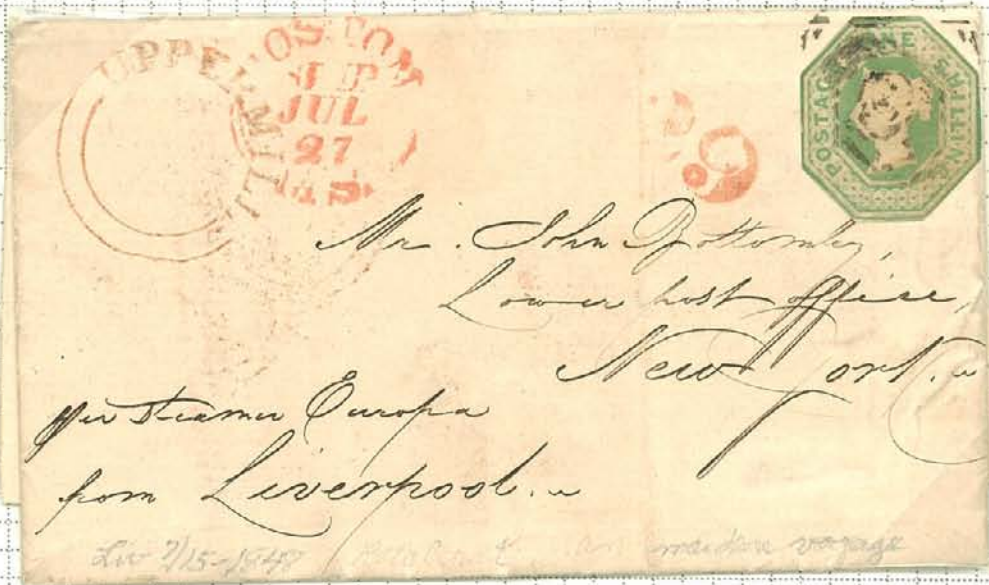 UPPERMILL
BOSTON
SHIP
JUL
27
MAS.
POSTAGE ONE SHILLING
Mr. John Bottomley,
Lower Post office,
New York.
per Steamer Europa
from Liverpool.
Liv 7/15-1848
maiden voyage